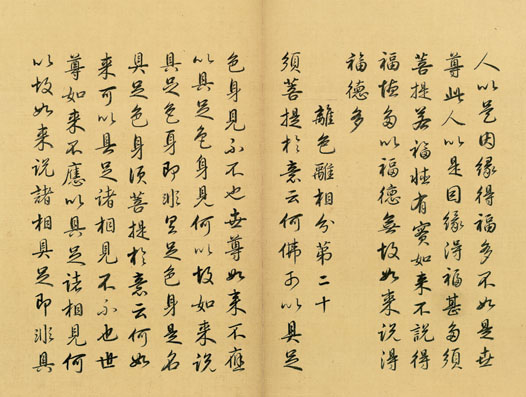 人以是因緣得福多不如是世
尊此人以是因緣得福甚多須
菩提若福德有實如來不說得
福德多以福德無故如來說得
福德多
離色離相分第二十
須菩提於意云何佛可以具足
色身見不不也世尊如來不應
以具足色身見何以故如來說
具足色身即非具足色身是名
具足色身須菩提於意云何如
來可以具足諸相見不不也世
尊如來不應以具足諸相見何
以故如來說諸相具足即非具